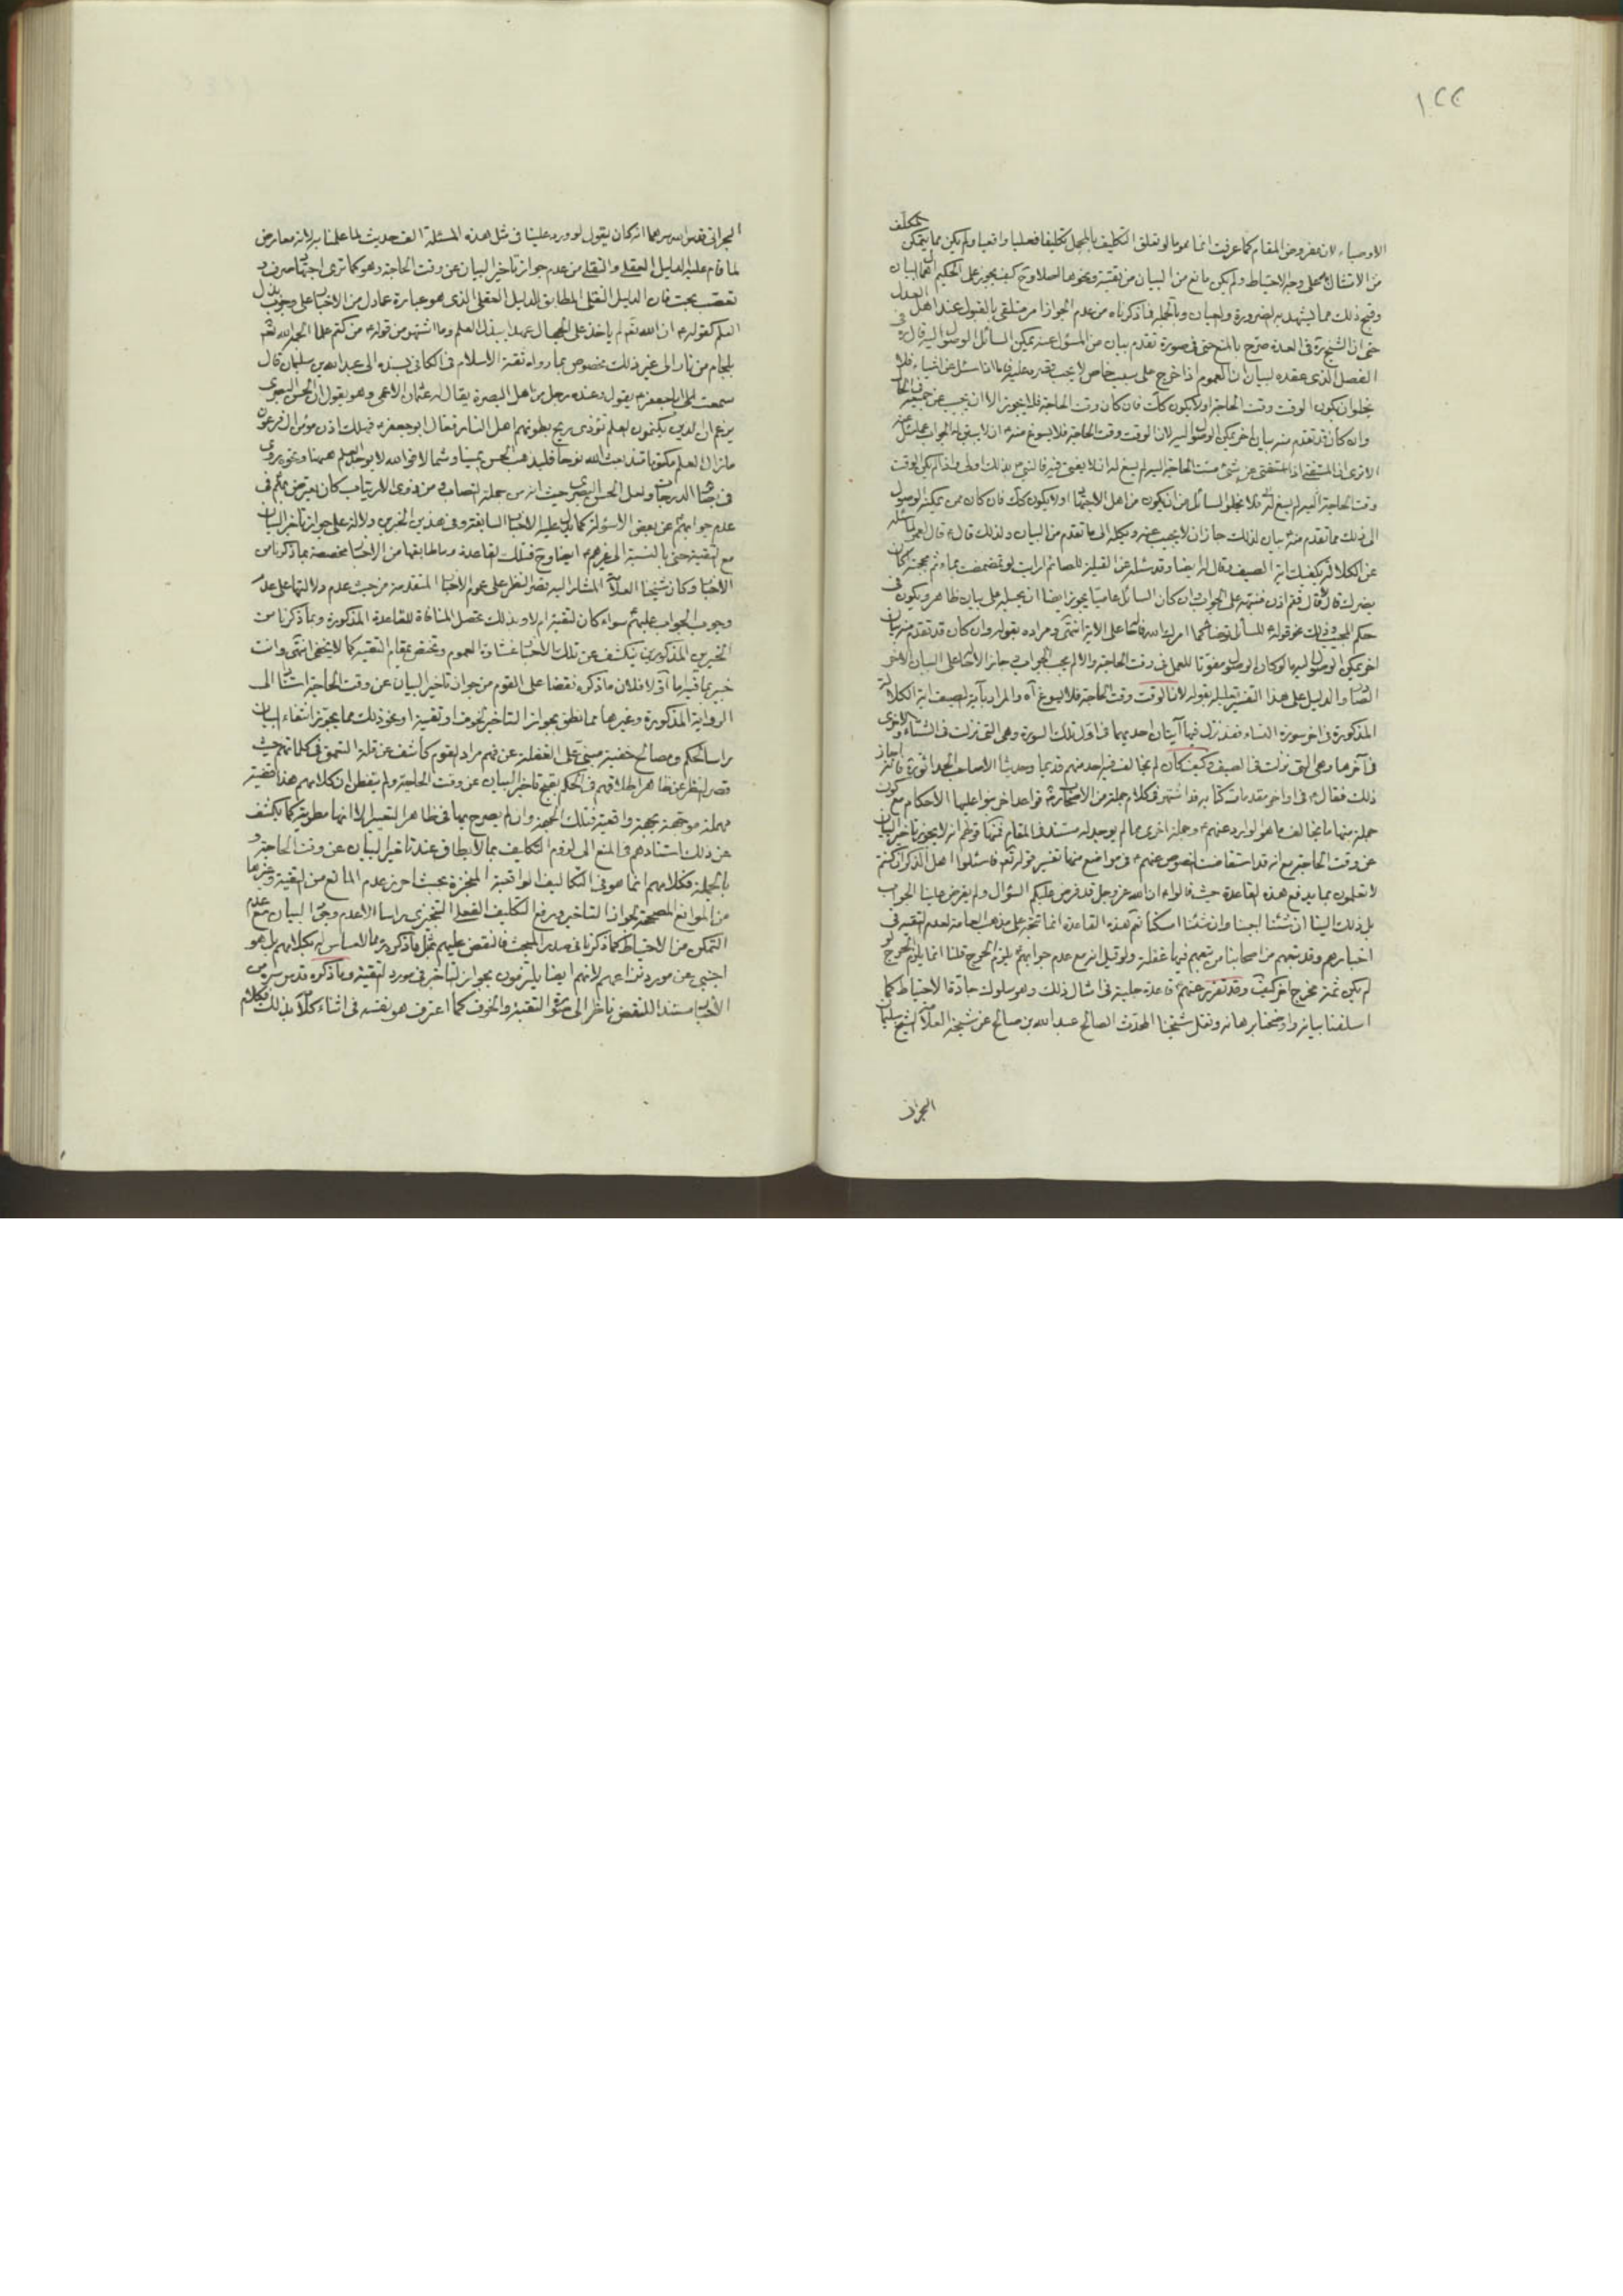 ١٢٢
المكلف
الاوصياء لان مفروض المقام كما عرفت انما هو ما لو تعلق التكليف بالمجمل تكليفا فعليا واقعيا ولم يكن مما يتمكن
من الامتثال به على وجه الاحتياط ولم يكن مانع من البيان من تقية ونحوها اصلا وح كيف يجوز على الحكيم اهمال البيان
وقبح ذلك مما يشهد به الضرورة والعيان وبالجملة فما ذكرناه من عدم الجواز امر متلقى بالقبول عند اهل العدل
حتى ان الشيخ ره في العدة صرح بالمنع حتى في صورة تقدم بيان من المسئول عنه يمكن السائل الوصول اليه قال ره في
الفصل الذي عقده لبيان ان العموم اذا خرج على سبب خاص لا يجب قصره عليه فاما اذا سئل عن اشياء فلا
يخلوا ان يكون الوقت وقت الحاجة اولا يكون كك فان كان وقت الحاجة فلا يجوز الا ان يجيب عن جميعه في الحال
وان كان قد تقدم منه بيان اخر يمكن الوصول اليه لان الوقت وقت الحاجة فلا يسوغ منه ان لا يبقى الجواب عما سئل عنه
الا ترى ان المستفتى اذا استفتى عن شئ مست الحاجة اليه لم يسغ له ان لا يفتي فيه فالنبي ص بذلك اولى واذا لم يكن الوقت
وقت الحاجة اليه لم يسغ له فلا يخلو السائل من ان يكون من اهل الاجتهاد او لا يكون كك فان كان ممن يمكنه الوصول
الى ذلك مما تقدم منه بيان لذلك جاز ان لا يجيب عنه ويكله الى ما تقدم من البيان ولذلك قال ص قال لعمر لما سئله
عن الكلالة يكفيك اية الصيف وقال له ايضا وقد سئله عن القبلة للصائم ارايت لو تمضمضت بماء ثم مججته اكان
يضرك قال لا قال ففيم اذن فنبهه على الجواب وان كان السائل عاميا يجوز ايضا ان يحيله على بيان ظاهر ويكون في
حكم المجيب وذلك نحو قوله للسائل توضأ كما امرك الله فاحاله على الاية انتهى ومراده بقوله وان كان قد تقدم منه بيان
اخر يمكن الوصول اليه ما لو كان الوصول مفوتا للعمل في وقت الحاجة والا لم يجب الجواب بل جاز الاحالة على البيان الاخر
ايضا والدليل على هذا التفسير تعليله بقوله لان الوقت وقت الحاجة فلا يسوغ اه والمراد بآية الصيف اية الكلالة
المذكورة في اخر سورة النساء فقد نزل فيها آيتان احديهما في اول تلك السورة وهي التي نزلت في الشتاء والاخرى
في آخرها وهي التي نزلت في الصيف وكيف كان لم يخالف فيه احد منهم قديما وحديثا الا صاحب الحدائق ره فانه اجاز
ذلك فقال ره في اواخر مقدمات كتابه قد اشتهر في كلام جملة من الاصحاب ره قواعد اخر بنوا عليها الاحكام مع كون
جملة منها ما يخالف ما هو الوارد عنهم ع وجملة اخرى مما لم يوجد له مستند في المقام فمنها قولهم انه لا يجوز تاخير البيان
عن وقت الحاجة مع انه قد استفاضت النصوص عنهم ع في مواضع منها تفسير قوله تعالى فاسئلوا اهل الذكر ان كنتم
لا تعلمون بما يدفع هذه القاعدة حيث قالوا ع ان الله عز وجل قد فرض عليكم السؤال ولم يفرض علينا الجواب
بل ذلك الينا ان شئنا اجبنا وان شئنا امسكنا نعم هذه القاعدة انما تتجه على مذهب العامة لعدم التقية في
اخبارهم وقد تبعهم من اصحابنا من تبعهم فيها غفلة ولو قيل انه مع عدم جوابهم ع يلزم الحرج قلنا انما يلزم الحرج لو
لم يكن ثمة مخرج اخر كيف وقد تقرر عنهم ع قاعدة جلية في امثال ذلك وهو سلوك جادة الاحتياط كما
اسلفنا بيانه واوضحنا برهانه ونقل شيخنا المحدث الصالح عبد الله بن صالح عن شيخه العلامة الشيخ سليمان
البحراني
البحراني قدس الله سرهما انه كان يقول لو ورد علينا في مثل هذه المسئلة الف حديث لما علمنا به لانه معارض
لما قام عليه الدليل العقلي والنقلي من عدم جواز تاخير البيان عن وقت الحاجة وهو كما ترى اجتهاد صرف و
تعصب بحت فان الدليل النقلي المطابق للدليل العقلي الذي هو عبارة عما دل من الاخبار على وجوب بذل
العلم كقوله ع ان الله تعالى لم ياخذ على الجهال عهدا ببذل العلم وما اشتهر من قوله ع من كتم علما الجمه الله تعالى
بلجام من نار الى غير ذلك مخصوص بما رواه ثقة الاسلام في الكافي بسنده الى عبد الله بن سليمان قال
سمعت ابا جعفر ع يقول وعنده رجل من اهل البصرة يقال له عثمان الاعمى وهو يقول ان الحسن البصري
يزعم ان الذين يكتمون العلم تؤذى ريح بطونهم اهل النار فقال ابو جعفر ع فهلك اذن مؤمن ال فرعون
مازال العلم مكتوما منذ بعث الله نوحا فليذهب الحسن يمينا وشمالا فوالله لا يوجد العلم الا هيهنا ونحوه روى
في بصائر الدرجات ولعل الحسن البصري حيث انه من جملة النصاب ومن ذوى الارتياب كان يعترض عليهم في
عدم جوابهم ع عن بعض الاسئلة كما يدل عليه الاخبار السابقة وفي هذين الخبرين دلالة على جواز تاخير البيان
مع التقية حتى بالنسبة الى غيرهم ع ايضا وح فتلك القاعدة وما طابقها من الاخبار مخصصة بما ذكرنا من
الاخبار وكان شيخنا العلامة المشار اليه قصر النظر على عموم الاخبار المتقدمة من حيث عدم دلالتها على عدم
وجوب الجواب عليهم ع سواء كان لتقية ام لا وبذلك تحصل المنافاة للقاعدة المذكورة وبما ذكرنا من
الخبرين المذكورين ينكشف عن تلك الاخبار غشاوة العموم وتختص بمقام التقية كما لا يخفى انتهى وانت
خبير بما فيه اما اولا فلان ما ذكره نقضا على القوم من جواز تاخير البيان عن وقت الحاجة استنادا الى
الرواية المذكورة وغيرها مما نطق بجواز التاخير لخوف او تقية او نحو ذلك مما يجوز انتفاء البيان
راسا لحكم ومصالح خفية مبنى على الغفلة عن فهم مراد القوم كاشف عن قلة التعمق في كلماتهم حيث
قصر النظر عن ظاهر اطلاقهم في الحكم بقبح تاخير البيان عن وقت الحاجة ولم يتفطن ان كلامهم هذا قضية
مهملة موجهة بجهة واقعية فتلك الجهة وان لم يصرح بها في ظاهر التعبير الا انها مطوية كما يكشف
عن ذلك استنادهم في المنع الى لزوم التكليف بما لا يطاق عند تاخير البيان عن وقت الحاجة و
بالجملة فكلامهم انما هو في التكاليف الواقعية المنجزة بحيث احرز عدم المانع من التقية وغيرها
من الموانع المصححة لجواز التاخير ويرفع التكليف الفعلي التنجيزي راسا لا عدم وجوب البيان مع عدم
التمكن من الاحتياط كما ذكرنا في صدر المبحث فالنقض عليهم بمثل ما ذكره ره مما لا مساس له بكلامهم بل هو
اجنبي عن مورد نزاعهم لانهم ايضا يلتزمون بجواز التاخير في مورد التقية وما ذكره قدس سره من
الاخبار مستندا للنقض ناظر الى صورة التقية والخوف كما اعترف هو نفسه في اثناء كلامه بذلك فكلام